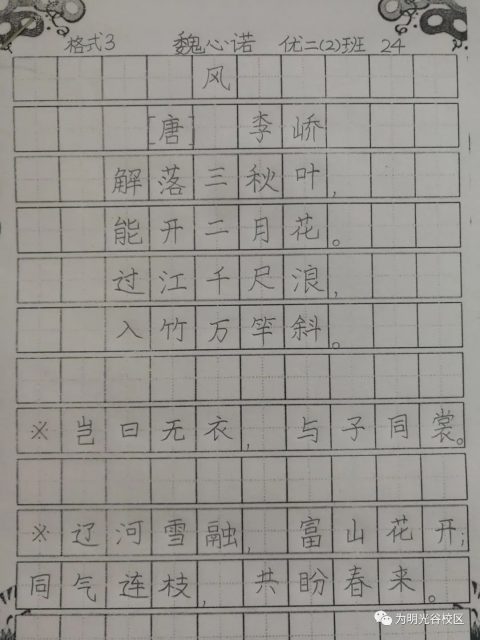 格式3 魏心诺 优二(2)班 24
风
[唐] 李峤
解落三秋叶,
能开二月花。
过江千尺浪,
入竹万竿斜。
※岂曰无衣,与子同裳。
※辽河雪融,富山花开;
同气连枝,共盼春来。
为明光谷校区